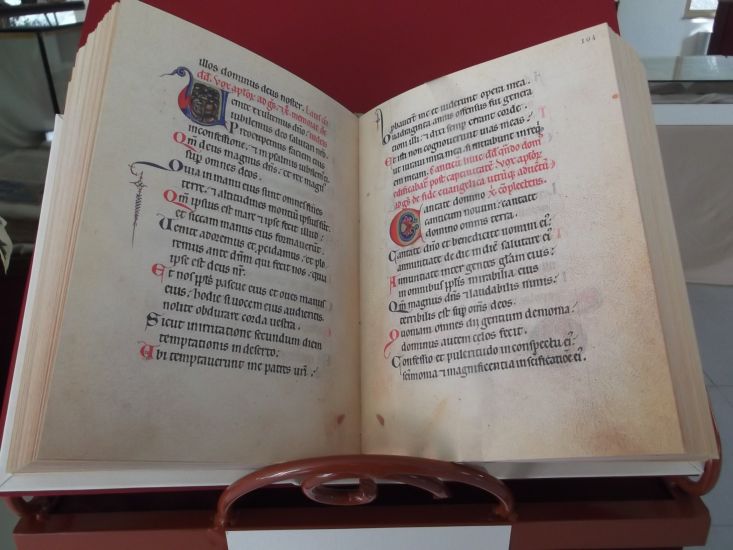 illos dominus deus noster. Laus cā
dd̄. Vox aplōr̄ ad
enite exultemus dn̄o
iubilemus deo salutari nr̄o
Preoccupemus faciem eius
in confessione, et in psalmis iubilem ei
Qm̄ deus magnus dn̄s. et rex magn
sup omnes deos.
Quia in manu eius sunt omnes fines
terre. et altitudines montiū ipsius sūt
Qm̄ ipsius est mare et ipse fecit illud
et siccam manus eius formaverūt
Uenite adoremus et pcidamus. et plo
remus ante dn̄m qui fecit nos. quia
ipse est deus nr̄.
Et nos ppl̄s pascue eius et oves manus
eius. hodie si uocem eius audieritis
nolite obdurare corda uestra.
Sicut in irritatione secundum diem
temptationis in deserto.
Ubi temptaverunt me patres ur̄i
194
pbauerūt me et uiderunt opera mea.
Quadraginta annis offensus fui genera
tioni illi. et dixi semp errant corde.
Et isti non cognouerunt uias meas
ut iuraui in ira mea si introibunt in req
em meam. Canticū huic dd̄. qn̄do dom
edificabat post captiuitatē. Vox aplōr̄
de fide euangelica
Cantate domino
canticum nouum. cantate
domino omnis terra.
Cantate dn̄o et benedicite nomini ei
annuntiate de die in diem salutare ei
Annuntiate inter gentes glām eius
in omnibus ppl̄is mirabilia eius
Qm̄ magnus dn̄s et laudabilis nimis
terribilis est sup om̄s deos.
Quoniam omnes dii gentium demonia
dominus autem celos fecit.
Confessio et pulcritudo in conspectu ei
sc̄imonia et magnificentia in sc̄ificatiōe ei